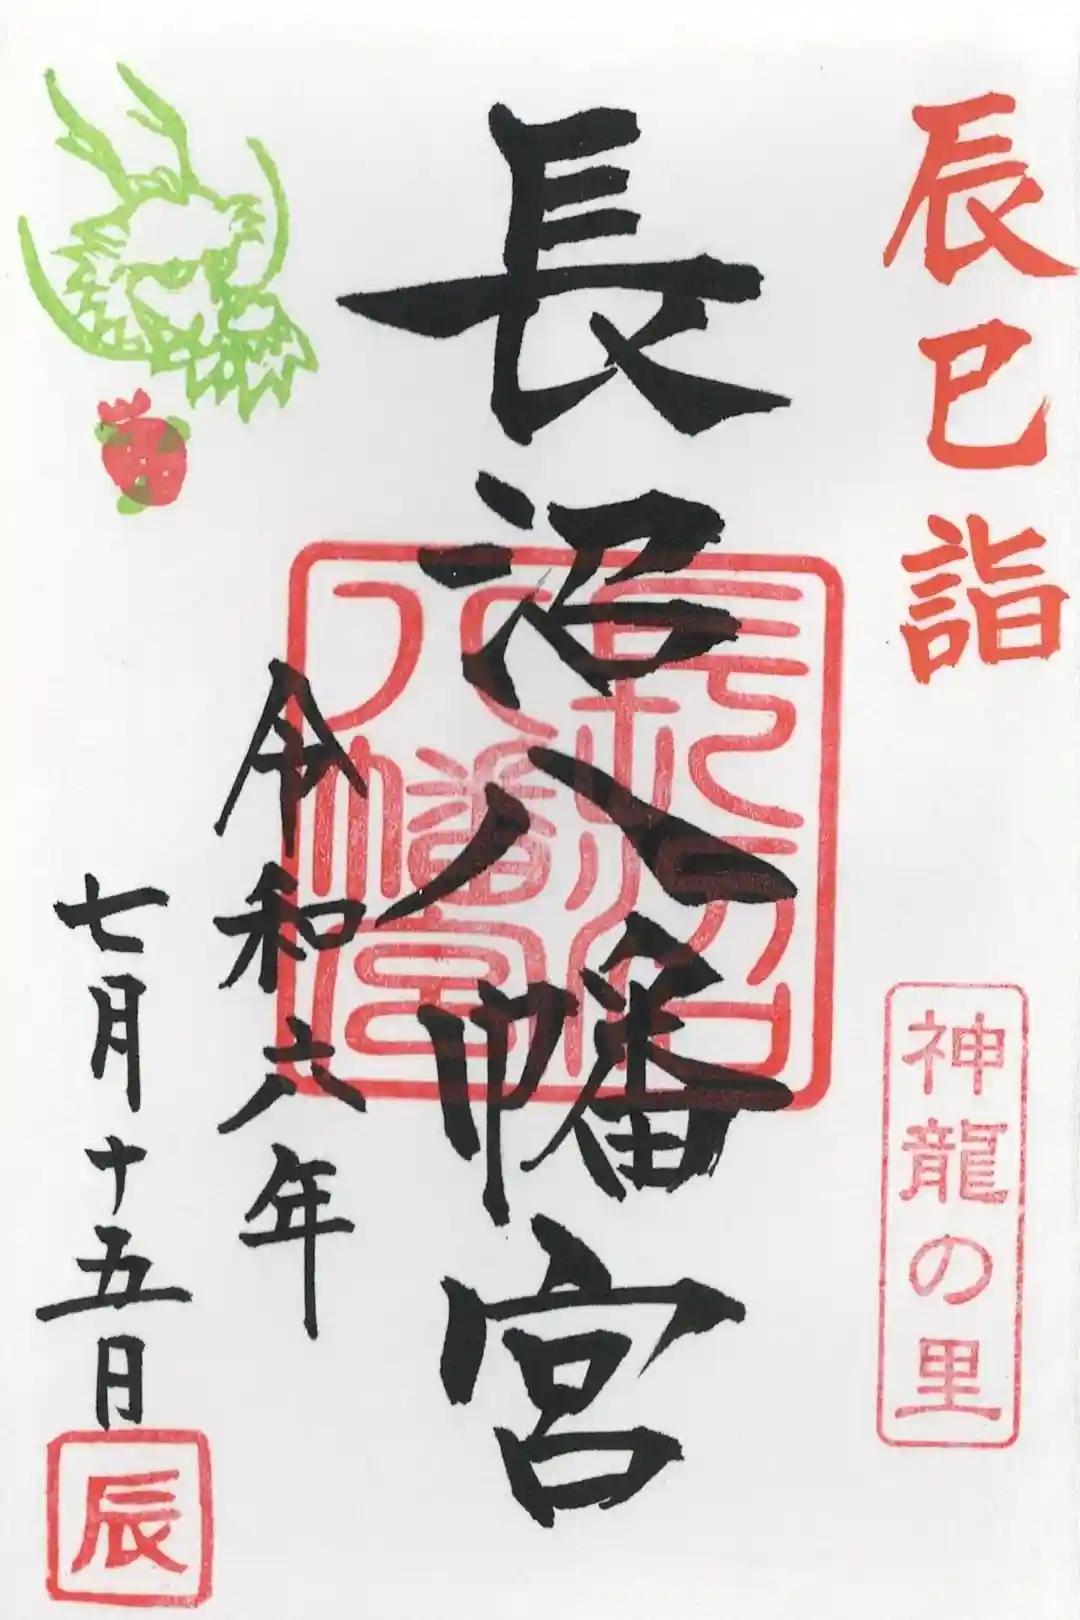 辰巳詣
神龍の里
長沼八幡宮
長沼
八幡宮
令和六年
七月十五日
辰